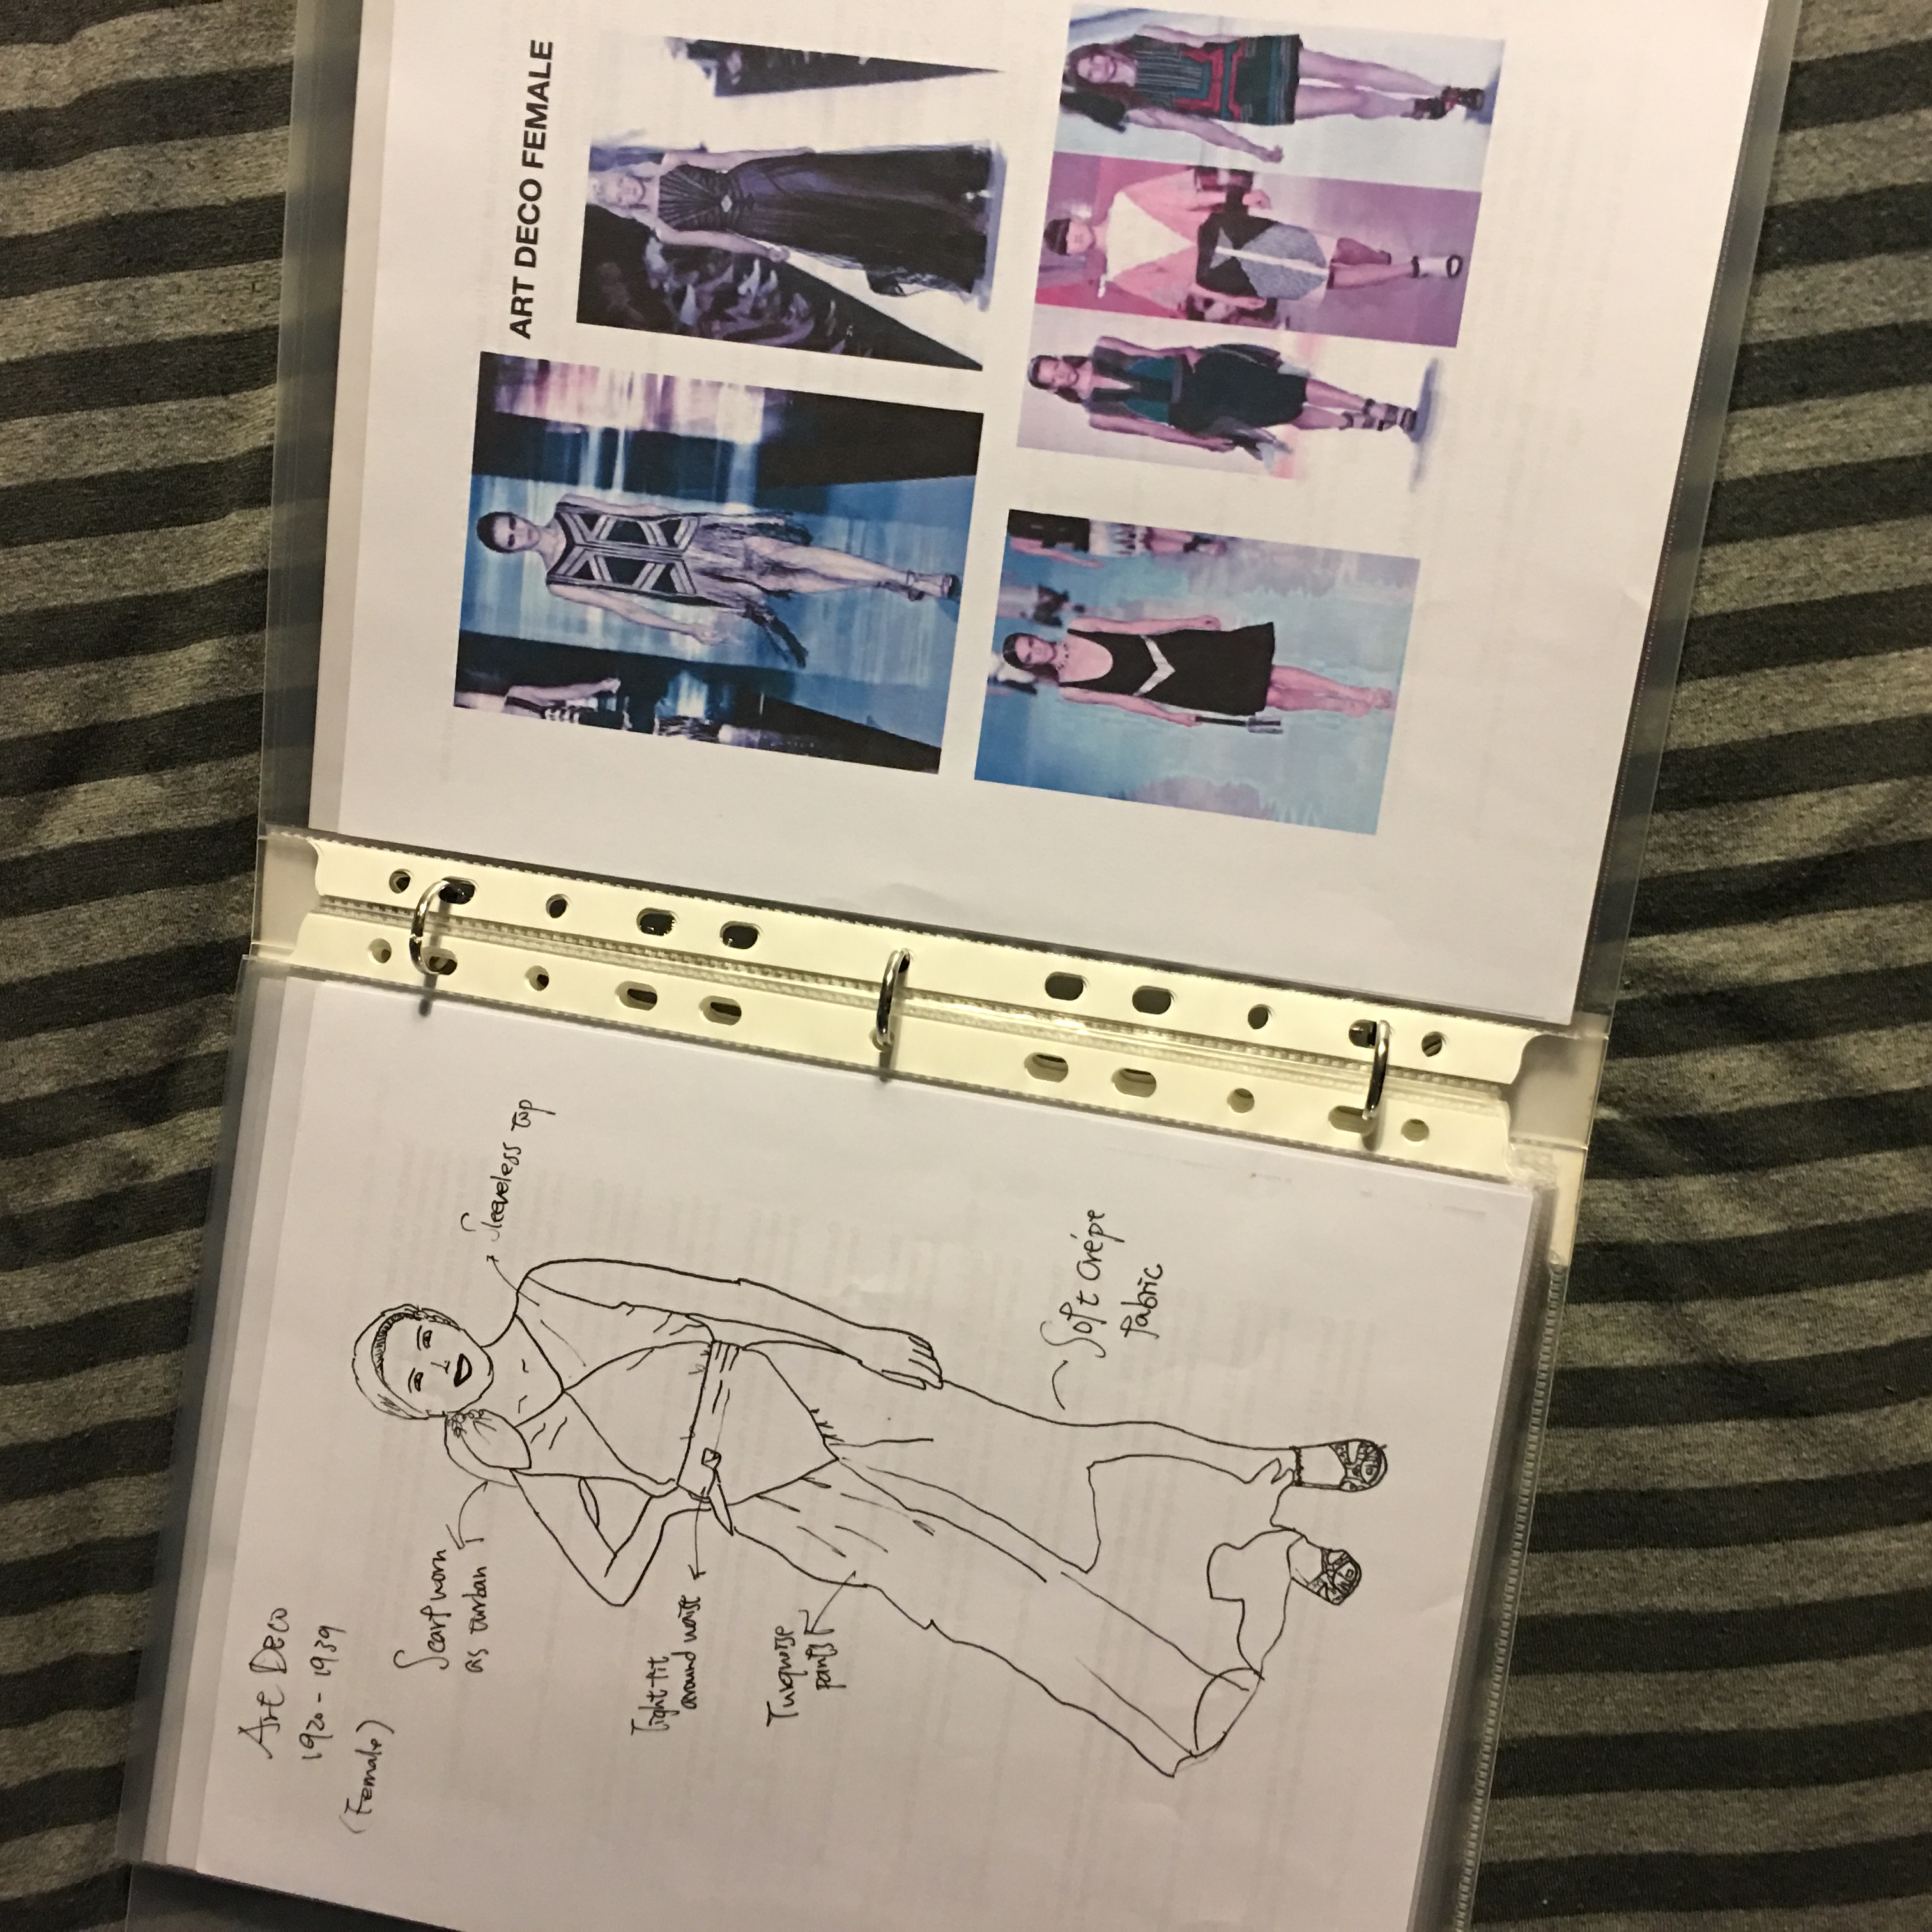 Art Deco
1920 - 1939
(Female)
Scarf worn
as turban
Sleeveless top
Tight fit
around waist
Turquoise
pants
Soft crépe
fabric
ART DECO FEMALE